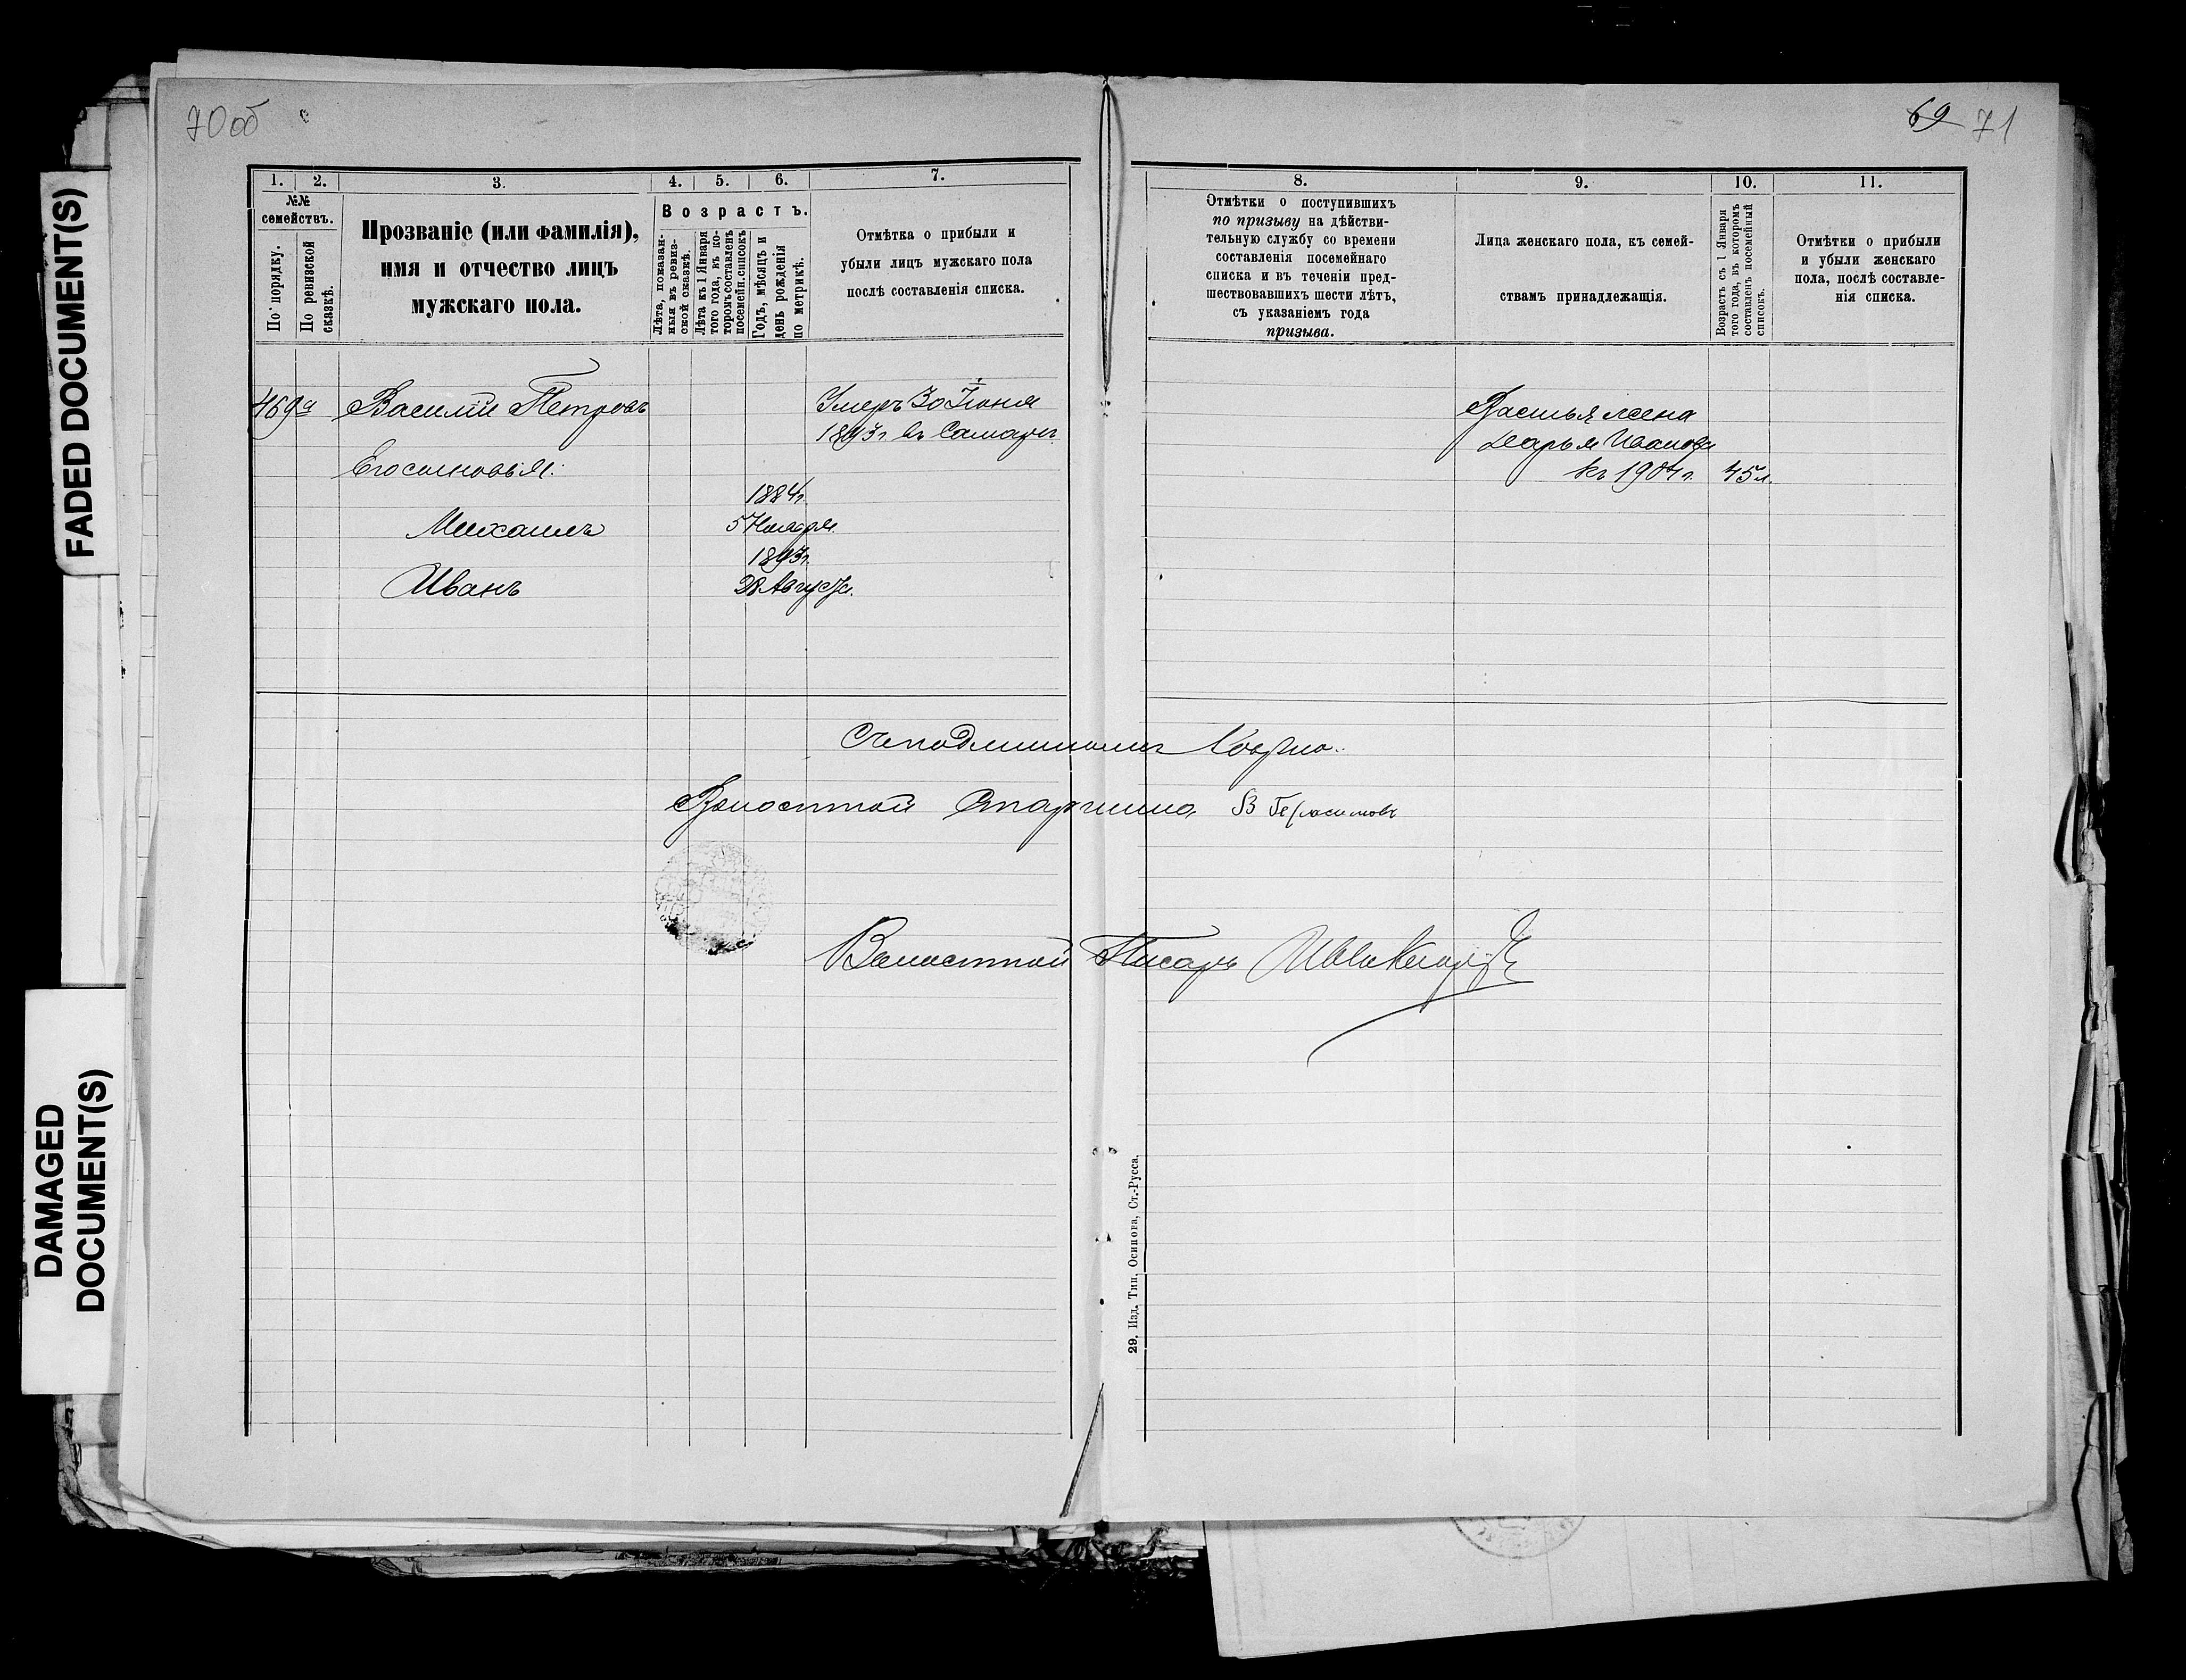 70 об
69 71
FADED DOCUMENT(S)
DAMAGED
DOCUMENT(S)
1. 2. 3. 4. 5. 6. 7.
№№
семействъ.
По порядку.
По ревизской
сказкѣ.
Прозваніе (или фамилія),
имя и отчество лицъ
мужскаго пола.
Возрастъ.
Лѣта, показан-
ныя въ ревиз-
ской сказкѣ.
Лѣта къ 1 Января
того года, въ ко-
торомъ составленъ
посемейн. списокъ
Годъ, мѣсяцъ и
день рожденія
по метрикѣ.
Отмѣтка о прибыли и
убыли лицъ мужскаго пола
послѣ составленія списка.
469а Василій Петровъ
Умеръ 30 Іюня
1893 г. въ Самарѣ.
Его сыновья:
1884 г.
Михаилъ 5 Ноября.
1893 г.
Иванъ 28 Августа.
8. 9. 10. 11.
Отмѣтки о поступившихъ
по призыву на дѣйстви-
тельную службу со времени
составленія посемейнаго
списка и въ теченіи пред-
шествовавшихъ шести лѣтъ,
съ указаніемъ года
призыва.
Лица женскаго пола, къ семей-
ствамъ принадлежащія.
Возрастъ съ 1 Января
того года, въ которомъ
составленъ посемейный
списокъ.
Отмѣтки о прибыли
и убыли женскаго
пола, послѣ составле-
нія списка.
Василья жена
Дарья Иванова
къ 1904 г. 45 л.
Съ подлиннымъ вѣрно.
Волостной Старшина В Герасимовъ
Волостной Писарь
29. Изд. Тип. Осипова, Ст.-Русса.